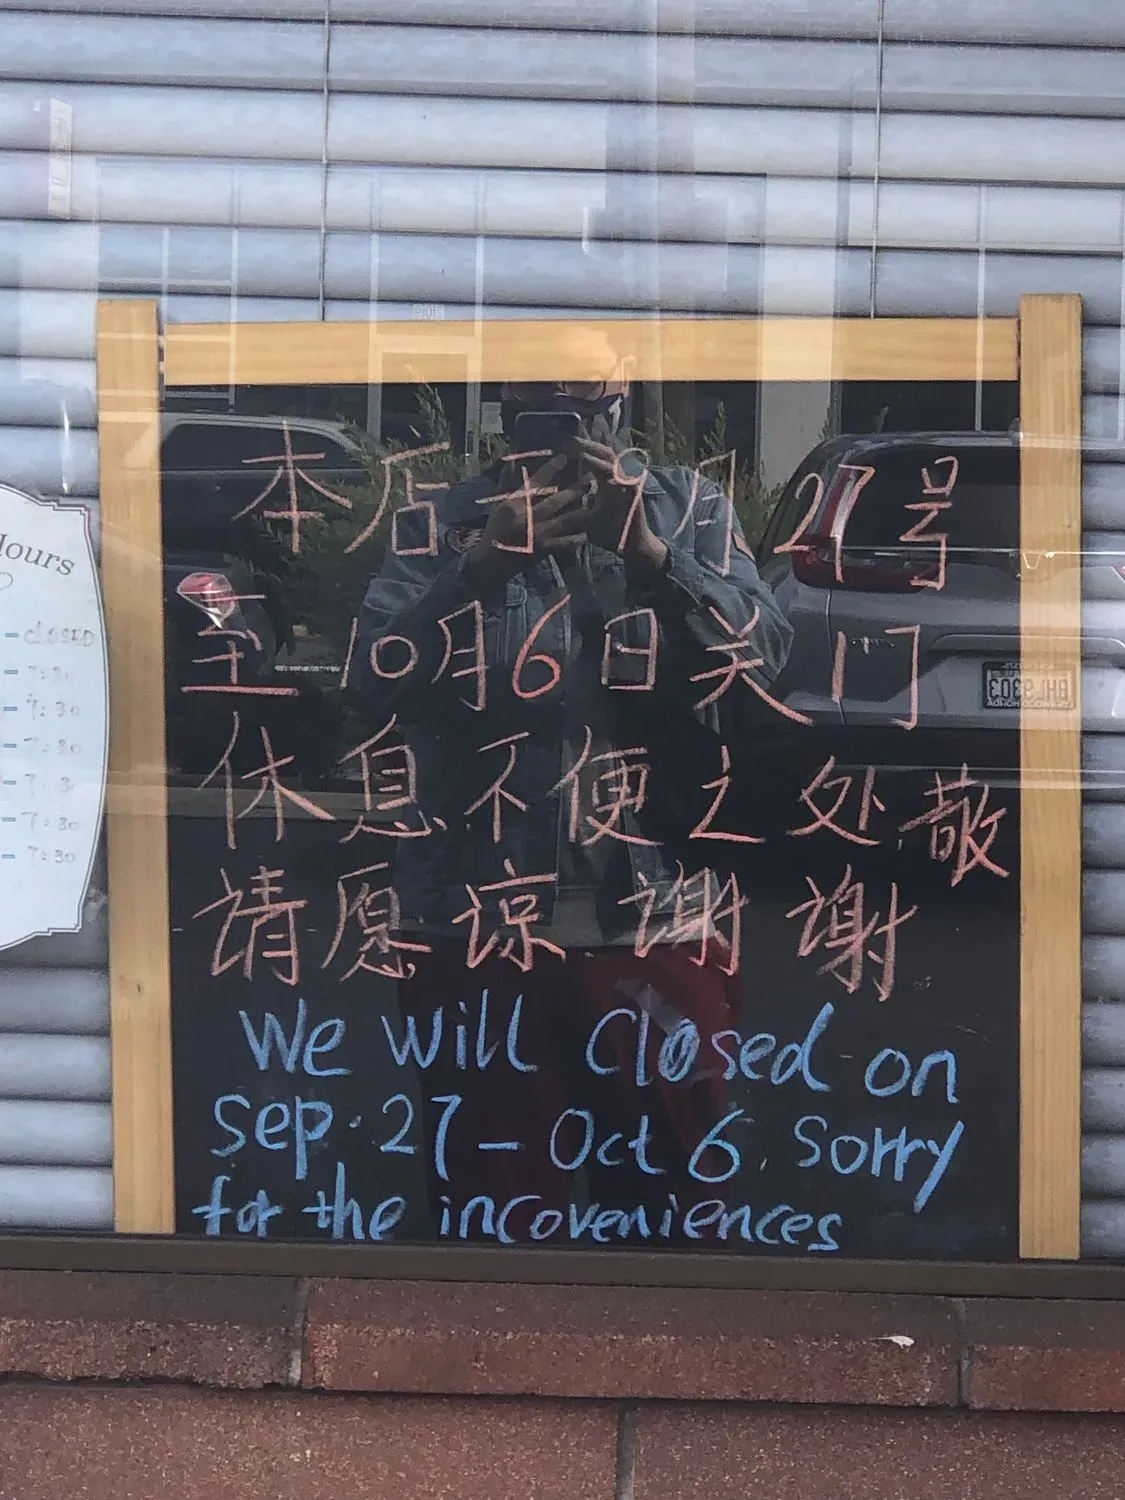 本后于9月27号
至10月6日关门
休息.不便之处,敬
请愿谅.谢谢
We will closed on
Sep. 27 - Oct 6. Sorry
for the incoveniences
Hours
- CLOSED
- 7:30
- 7:30
- 7:30
- 7:30
- 7:30
- 7:30
BHL9303